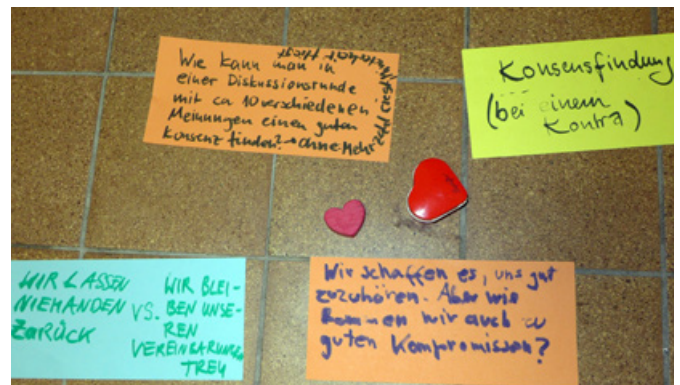 Wie kann man in
einer Diskussionsrunde
mit ca 10 verschiedenen
Meinungen einen guten
Konsenz finden? → ohne Mehr-
Konsensfindung
(bei einem
Kontra)
WIR LASSEN
NIEMANDEN
ZURÜCK
VS.
WIR BLEI-
BEN UNSE-
REN
VEREINBARUNGEN
TREU
Wir schaffen es, uns gut
zuzuhören. Aber wie
kommen wir auch zu
guten Kompromissen?